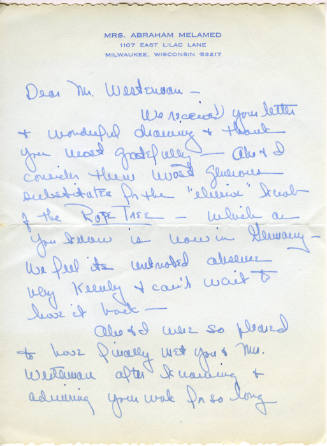 MRS. ABRAHAM MELAMED
1107 EAST LILAC LANE
MILWAUKEE, WISCONSIN 53217
Dear Mr. Westermann -
We received your letter
& wonderful drawing & thank
you most gratefully - Abe & I
consider them most generous
substitutes for the "elusive" knob
of the Rope Tree - which as
you know is now in Germany -
We feel its untimely absence
very keenly & can't wait to
have it back -
Abe & I were so pleased
to have finally met you & Mrs.
Westerman after knowing &
admiring your work for so long